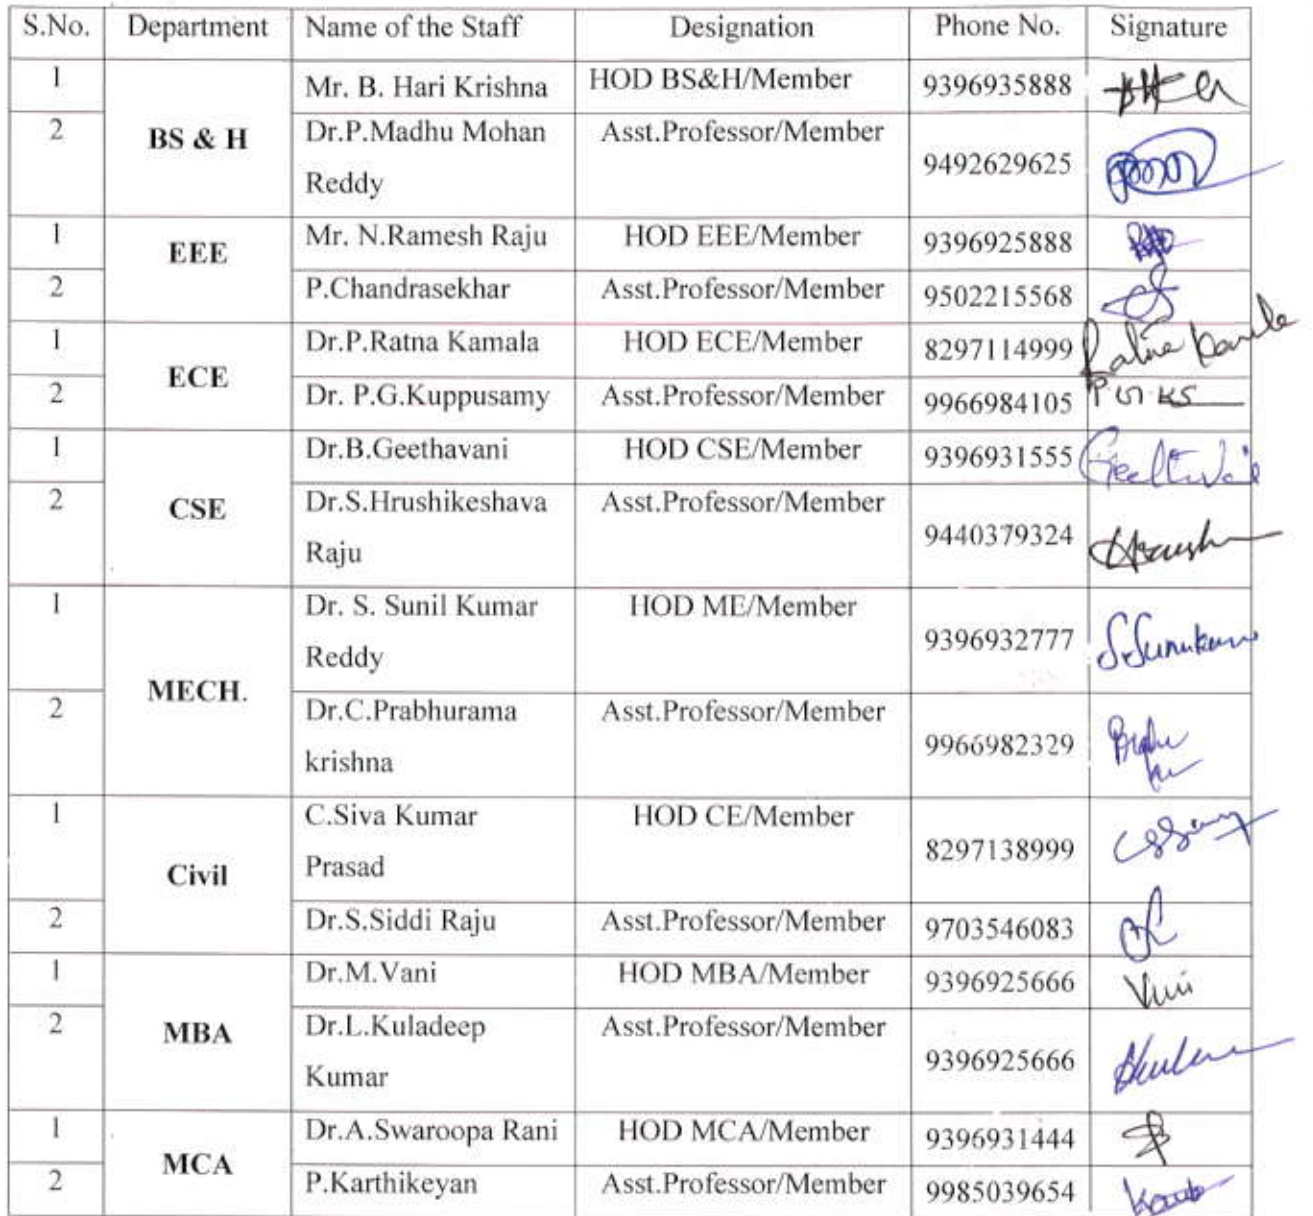 S.No. Department Name of the Staff Designation Phone No. Signature
1 BS & H Mr. B. Hari Krishna HOD BS&H/Member 9396935888
2 Dr.P.Madhu Mohan Asst.Professor/Member 9492629625
Reddy
1 EEE Mr. N.Ramesh Raju HOD EEE/Member 9396925888
2 P.Chandrasekhar Asst.Professor/Member 9502215568
1 ECE Dr.P.Ratna Kamala HOD ECE/Member 8297114999
2 Dr. P.G.Kuppusamy Asst.Professor/Member 9966984105
1 CSE Dr.B.Geethavani HOD CSE/Member 9396931555
2 Dr.S.Hrushikeshava Asst.Professor/Member 9440379324
Raju
1 MECH. Dr. S. Sunil Kumar HOD ME/Member 9396932777
Reddy
2 Dr.C.Prabhurama Asst.Professor/Member 9966982329
krishna
1 Civil C.Siva Kumar HOD CE/Member 8297138999
Prasad
2 Dr.S.Siddi Raju Asst.Professor/Member 9703546083
1 MBA Dr.M.Vani HOD MBA/Member 9396925666
2 Dr.L.Kuladeep Asst.Professor/Member 9396925666
Kumar
1 MCA Dr.A.Swaroopa Rani HOD MCA/Member 9396931444
2 P.Karthikeyan Asst.Professor/Member 9985039654